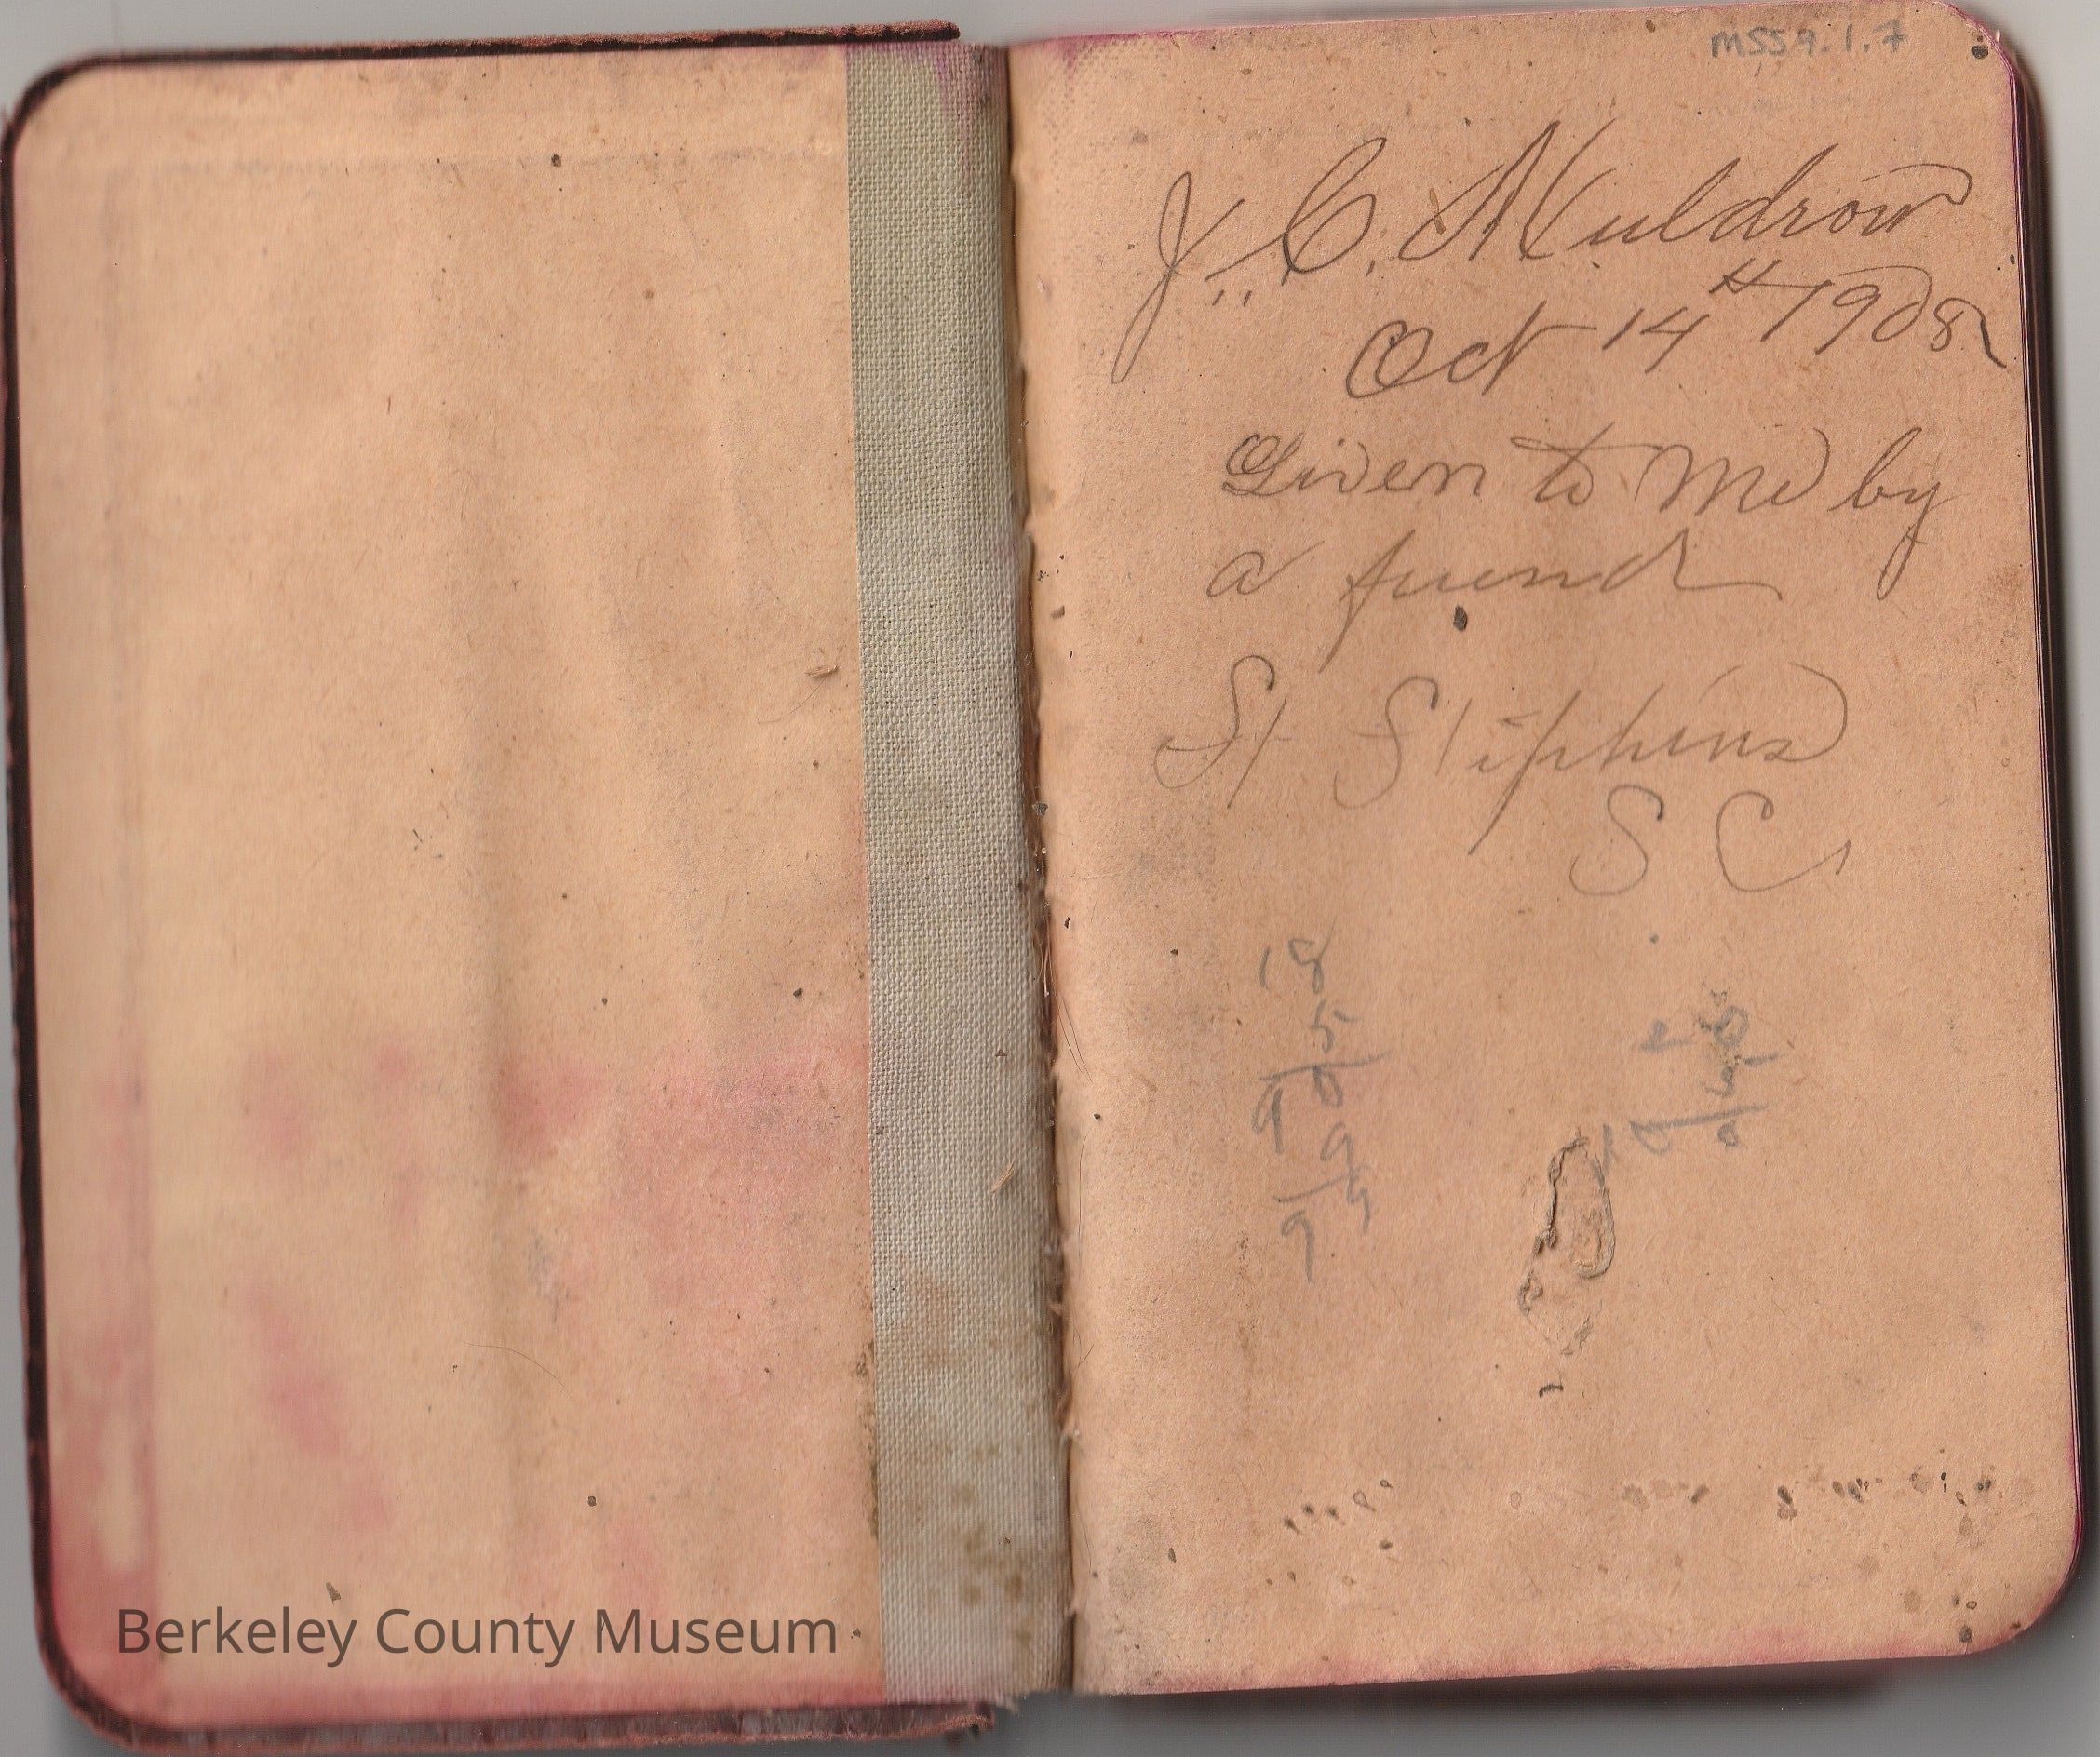 MSS9.1.7
J. C. Muldrow
Oct 14th 1908
Given to me by
a friend
St Stephens
S C.
18
5
90
9
95
Berkeley County Museum